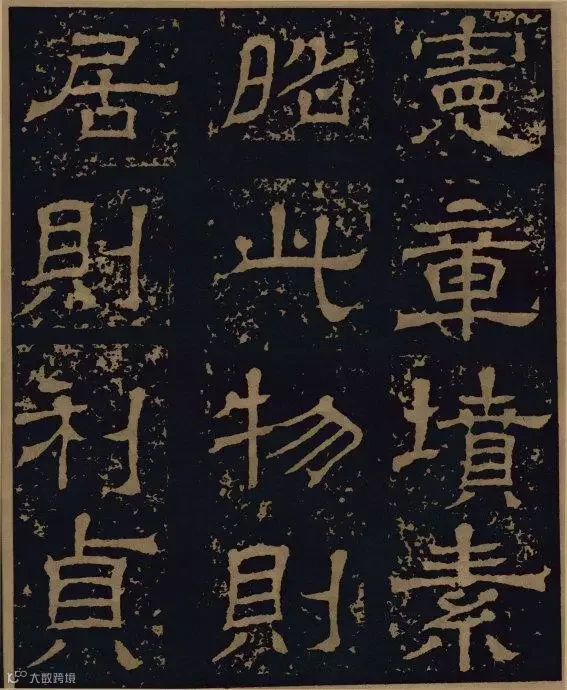 憲章墳素
昭此物則
居則利貞
大数跨境